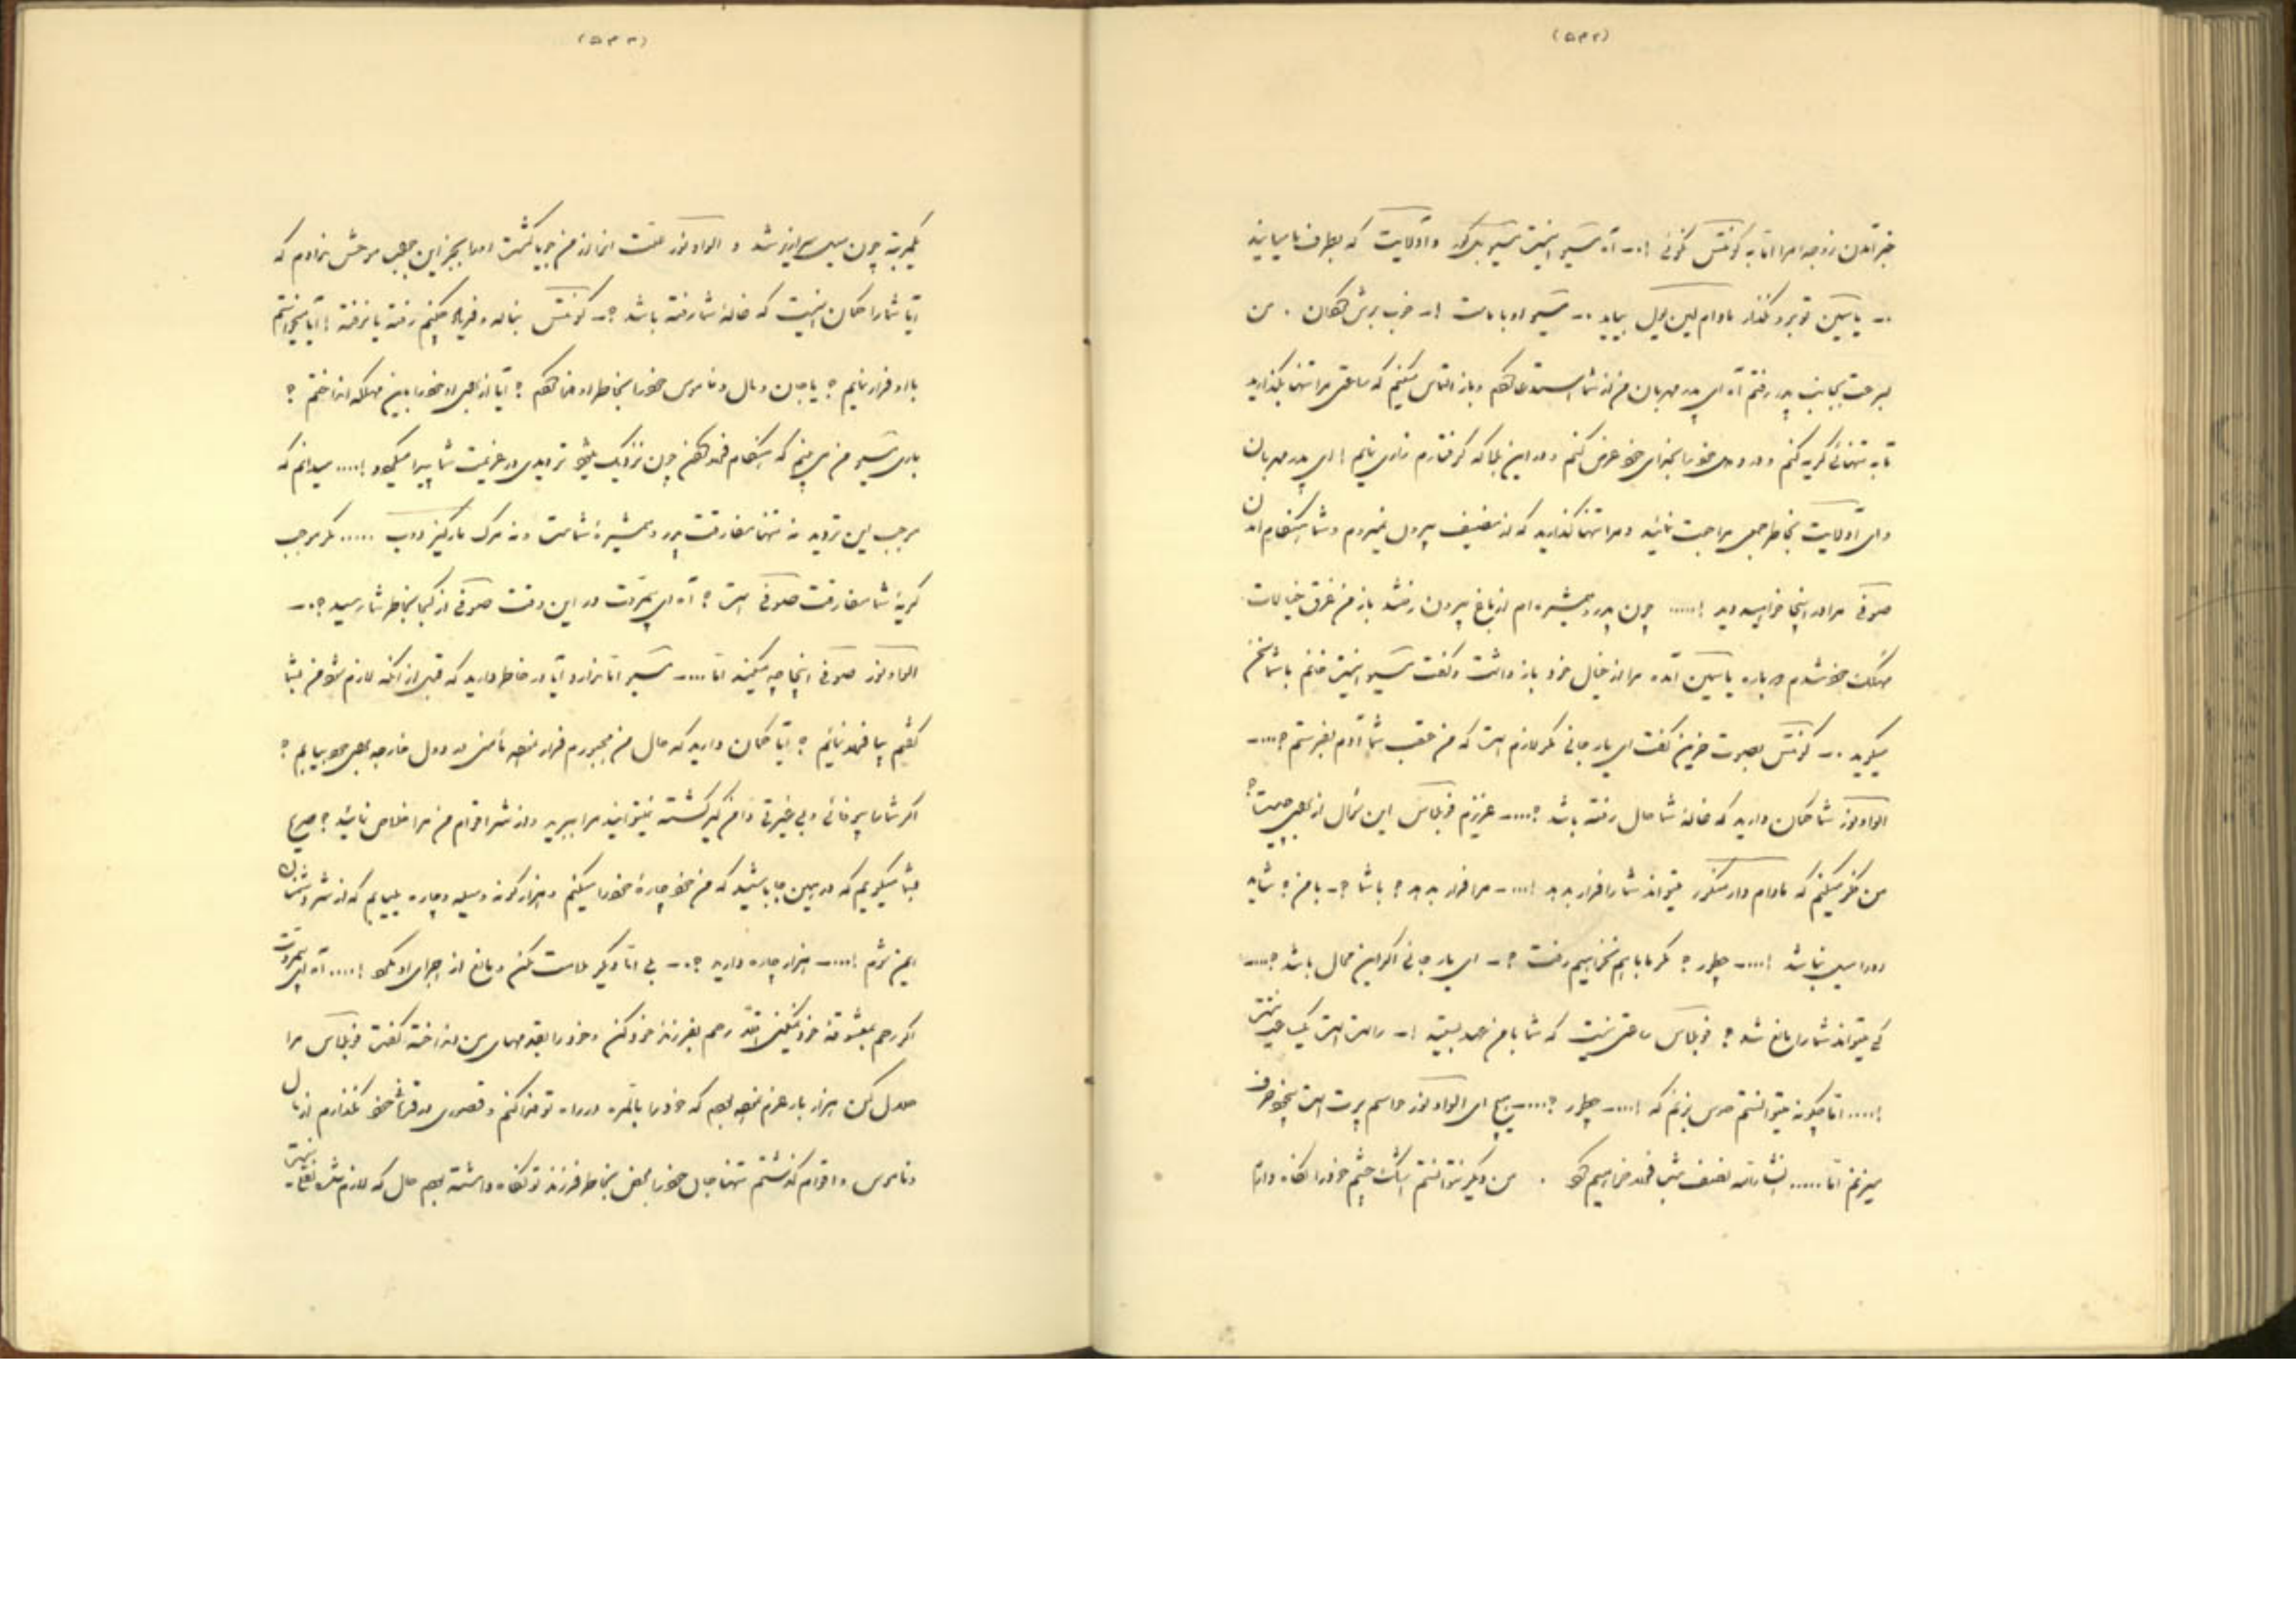 (۵۴۲)
خبر آمدن زوجه امرا اما به کونتس گوئی !.. آه مسیو اینست مسیو بلکور و آدلایت که بطرف ما میایند
.. یاسمین تو برو نگذار مادام لین ویل بیاید .. مسیو او با ماست !.. خوب برش گردان . من
بسرعت بجانب پدر رفتم آه ای پدر مهربان من از شما استدعا میکنم و باز التماس میکنم که ساعتی مرا تنها بگذارید
تا به تنهائی گریه کنم و درد دل خود را بخدای خود عرض کنم و در این بلا که گرفتارم زاری نمایم ! ای پدر مهربان
و ای آدلایت بخاطر جمعی مراجعت نمائید و مرا تنها گذارید که از نصیف بیرون نمیروم و شما هنگام آمدن
صوفی مرا در اینجا خواهید دید !.... چون پدر و همشیره ام از باغ بیرون رفتند باز من غرق خیالات
مهلک خود شدم دوباره یاسمین آمده مرا از خیال خود باز داشت و گفت مسیو اینست خانم با شما سخن
میگوید .. کونتس بصوت حزین گفت ای یار جانی مگر لازم است که من عقب شما آدم بفرستم ?....
الوادنوز شما گمان دارید که خانهٔ شما حال رفته باشد ?.... عزیزم فربلاس این سؤال از بهر چیست ؟
من فکر میکنم که مادام دار منکور میتواند شما را فرار بدهد !.... مرا فرار بدهد ؟ با شما ؟.. با من ؟ شاید
دورا سیل باشد !.... چطور ؟ مگر ما با هم نخواهیم رفت ؟.. ای یار جانی اگر این محال باشد ?....
کی میتواند شما را مانع شد ؟ فربلاس ساعتی نیست که شما با من عهد بستید !.. راست است یک ساعت نیست
!.... اما چگونه میتوانستم حدس بزنم که !.... چطور ?.... هیچ ای الوادنوز حواسم پرت است بیخود حرف
میزنم اما ..... انشاءالله نصف شب فرار خواهیم کرد . من دیگر نتوانستم اشک چشم خود را نگاه دارم
(۵۴۳)
یکمرتبه چون سیل سرازیر شد و الوادنوز علت انرا از من جویا گشت اما بجز این جواب موحش ندادم که
آیا شما را گمان اینست که خانهٔ شما رفته باشد ؟.. کونتس بناله و فریاد میگفت رفته یا نرفته ! آیا میخواستم
با او فرار نمایم ؟ یا جان و مال و ناموس خود را بخاطر او فنا کنم ؟ آیا از برای او خود را باین مهلکه انداختم ؟
باری مسیو من می بینم که هنگام فرار کردن چون نزدیک میشود تردیدی در عزیمت شما پیدا میگردد !.... میدانم که
موجب این تردید نه تنها مفارقت پدر و همشیرهٔ شماست و نه مرک مارکیز دوب ..... مگر موجب
گریهٔ شما مفارقت صوفی است ؟ آه ای بیمروت در این وقت صوفی از کجا بخاطر شما رسید ?..
الوادنوز صوفی اینجا چه میکند اما .... مسیو اما ندارد آیا در خاطر دارید که قبل از آنکه لازم شود من بشما
گفتم بیا فرار نمائیم ؟ آیا گمان دارید که حال من مجبورم فرار نموده مأمنی در دول خارجه برای خود بیابم ؟
اگر شما بیوفائی و بی غیرتی دامن گیر گشته نمیتوانید مرا ببرید و از شر اقوام من مرا خلاص نمائید ؟ صریح
بشما میگویم که در همین جا باشید که من خود چارهٔ خود را میکنم و هزار گونه وسیله و چاره بیابم که از شر دشمنان
ایمن شوم !.... هزار چاره دارید ?.. بی اما دیگر ملامت مکن و مانع از اجرای او مشو !.... آه ای بیمروت
اگر رحم بمعشوقهٔ خود نمیکنی اقلاً رحم بفرزند خود کن و خود را بقدمهای من انداخته گفت فربلاس مرا
حلال کن هزار بار عزم نموده بودم که خود را بالمره در راه تو فدا کنم و قصوری در قربانی خود نگذارم از مال
و ناموس و اقوام گذشتم تنها جان خود را محض بخاطر فرزند تو نگاه داشته بودم حال که لازم شده بقای نیست